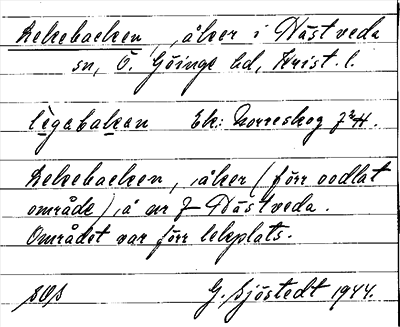 Lekebacken, åker i Nästveda
sn, Ö. Göinge hd, Krist. l.
legabakan Ek: Norreskog
Lekebacken, åker (förr oodlat
område), å nr 7 Nästveda.
Området var förr lekplats.
SOS G. Sjöstedt 1944.